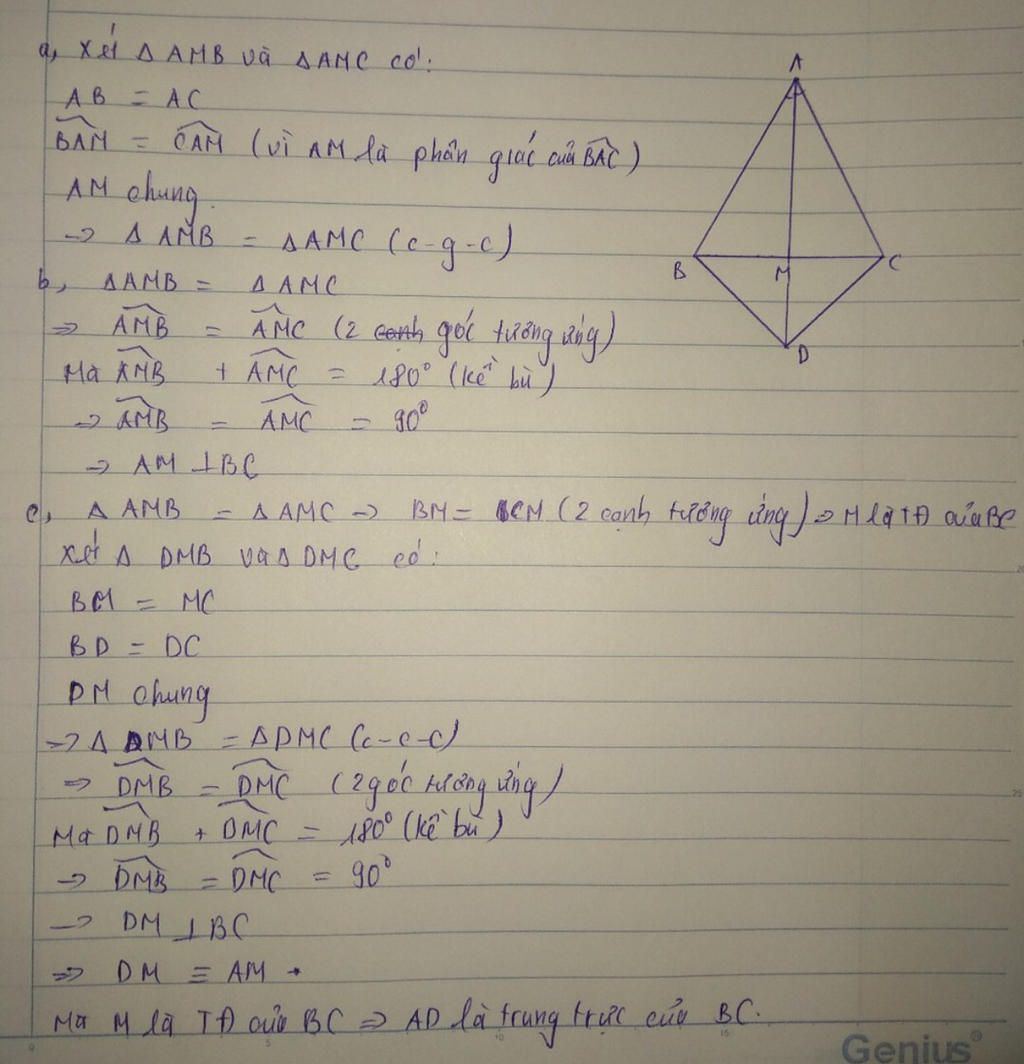 a, Xét Δ AMB và Δ AMC có:
AB = AC
BAM = CAM (vì AM là phân giác của BAC)
AM chung.
-> Δ AMB = Δ AMC (c-g-c)
b, Δ AMB = Δ AMC
=> AMB = AMC (2 cạnh góc tương ứng)
Mà AMB + AMC = 180° (kề bù)
-> AMB = AMC = 90°
=> AM ⊥ BC
c, Δ AMB = Δ AMC -> BM = CM (2 cạnh tương ứng) => M là TĐ của BC
Xét Δ DMB và Δ DMC có:
BM = MC
BD = DC
DM chung
-> Δ DMB = Δ DMC (c-c-c)
=> DMB = DMC (2 góc tương ứng)
Mà DMB + DMC = 180° (kề bù)
-> DMB = DMC = 90°
-> DM ⊥ BC
=> DM ≡ AM
Mà M là TĐ của BC => AD là trung trực của BC.
A
B
M
C
D
Genius